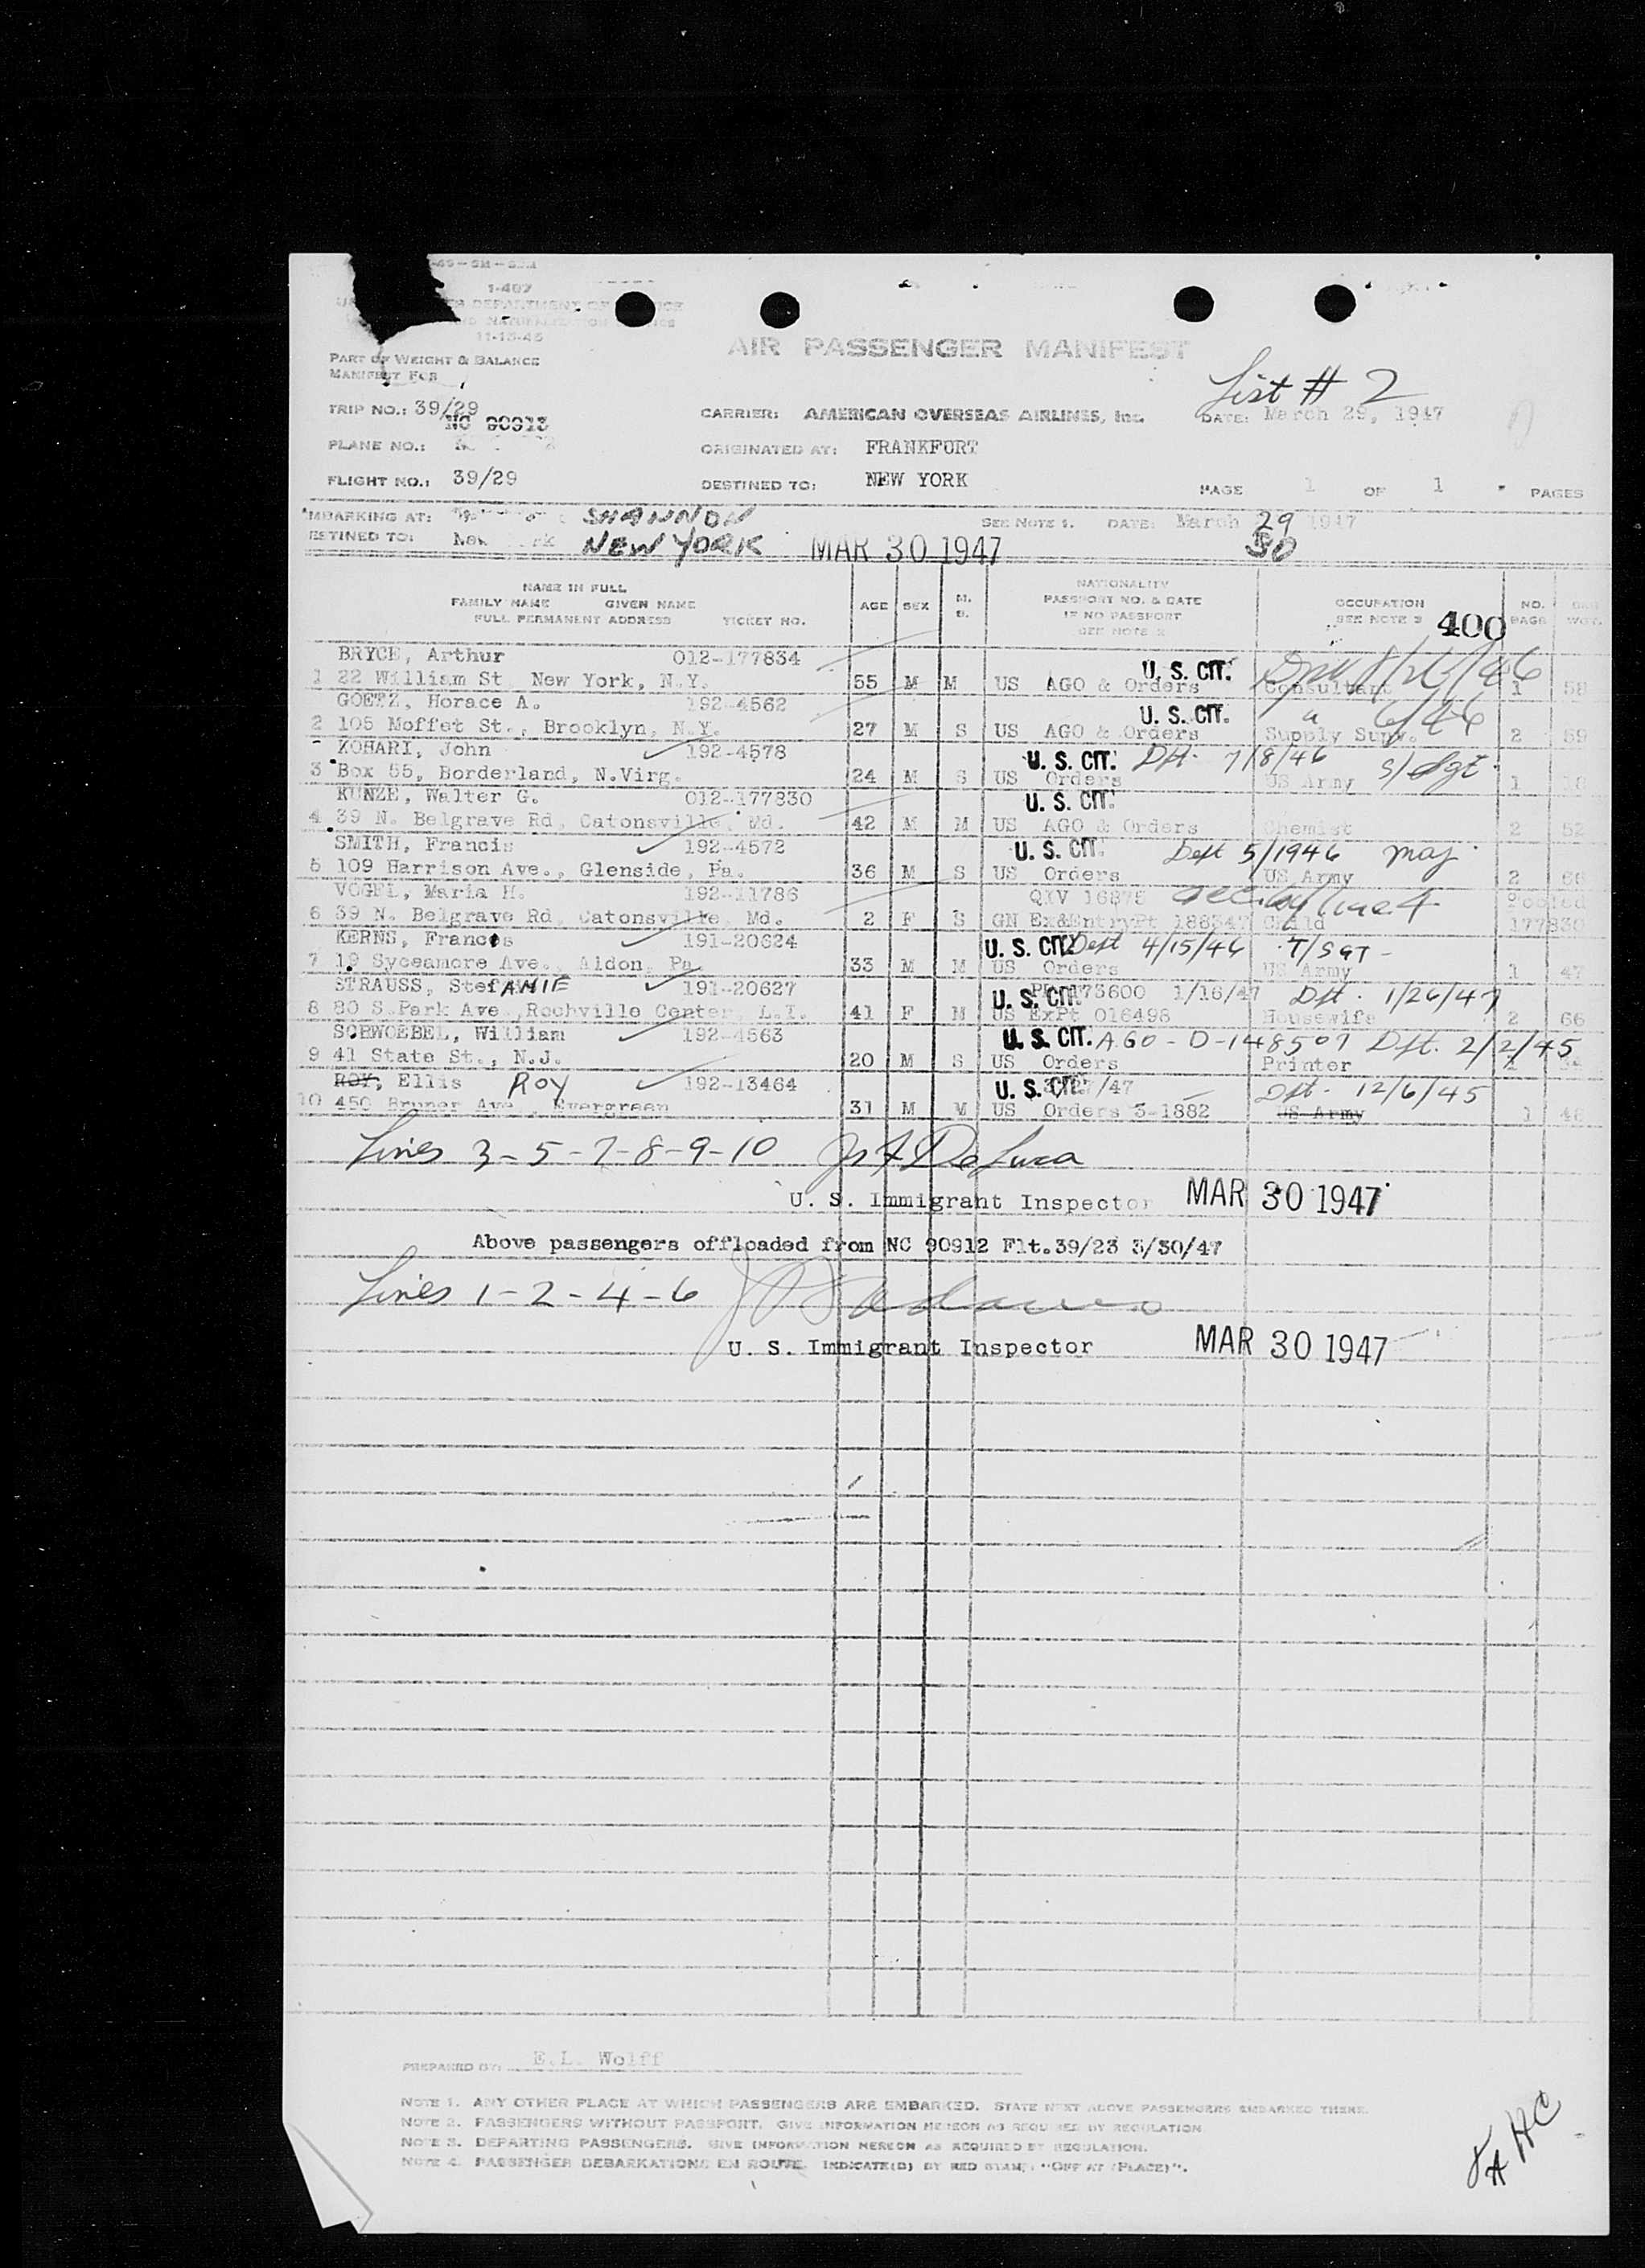 1-407
11-15-45
AIR PASSENGER MANIFEST
PART OF WEIGHT & BALANCE
MANIFEST FOR
List # 2
TRIP NO.: 39/29
CARRIER: AMERICAN OVERSEAS AIRLINES, Inc.
DATE: March 29, 1947
NC 90913
PLANE NO.:
ORIGINATED AT: FRANKFURT
FLIGHT NO.: 39/29
DESTINED TO: NEW YORK
PAGE 1 OF 1 PAGES
MBARKING AT: SHANNON
SEE NOTE 1. DATE: March 29 1947
ESTINED TO: NEW YORK MAR 30 1947 30
NAME IN FULL
FAMILY NAME GIVEN NAME
FULL PERMANENT ADDRESS TICKET NO.
AGE SEX M. S.
NATIONALITY
PASSPORT NO. & DATE
IF NO PASSPORT
SEE NOTE 2
OCCUPATION
SEE NOTE 3 400
NO. PAGE
WGT.
BRYCE, Arthur 012-177834 U. S. CIT.
1 22 William St New York, N.Y. 55 M M US AGO & Orders Consultant 1 58
GOETZ, Horace A. 192-4562 U. S. CIT. " 6/46
2 105 Moffet St., Brooklyn, N.Y. 27 M S US AGO & Orders Supply Supv. 2 59
KOHARI, John 192-4578 U. S. CIT. Dpt. 7/8/46 S/Sgt.
3 Box 55, Borderland, N.Virg. 24 M S US Orders US Army 1 18
KUNZE, Walter G. 012-177830 U. S. CIT.
4 39 N. Belgrave Rd, Catonsville, Md. 42 M M US AGO & Orders Chemist 2 52
SMITH, Francis 192-4572 U. S. CIT. Dept 5/1946 Maj.
5 109 Harrison Ave., Glenside, Pa. 36 M S US Orders US Army 2 66
VOGEL, Maria H. 192-11786 QIV 16878 acc. by line 4
6 39 N. Belgrave Rd, Catonsville, Md. 2 F S GN Ex&EntryPt 188347 Child 177830
KERNS, Francis 191-20624 U. S. CIT. Dept 4/15/46 T/SGT -
7 19 Syceamore Ave., Aldon, Pa. 33 M M US Orders US Army 1 47
STRAUSS, StefANIE 191-20627 U. S. CIT. 173600 1/16/47 Dpt. 1/26/47
8 80 S.Park Ave.,Rochville Center, L.I. 41 F M US ExPt 016498 Housewife 2 66
SCHWOEBEL, William 192-4563 U. S. CIT. AGO - D-148507 Dpt. 2/2/45
9 41 State St., N.J. 20 M S US Orders Printer 1
ROY, Ellis ROY 192-13464 U. S. CIT. /47 Dpt. 12/6/45
10 450 Bruner Ave., Evergreen 31 M M US Orders 3-1882 US Army 1 46
Lines 3-5-7-8-9-10 De Luca
U. S. Immigrant Inspector MAR 30 1947
Above passengers offloaded from NC 90912 Flt.39/23 3/30/47
Lines 1-2-4-6
U. S. Immigrant Inspector MAR 30 1947
PREPARED BY: E.L. Wolff
NOTE 1. ANY OTHER PLACE AT WHICH PASSENGERS ARE EMBARKED. STATE NEXT ABOVE PASSENGERS EMBARKED THERE.
NOTE 2. PASSENGERS WITHOUT PASSPORT. GIVE INFORMATION HEREON AS REQUIRED BY REGULATION
NOTE 3. DEPARTING PASSENGERS. GIVE INFORMATION HEREON AS REQUIRED BY REGULATION.
NOTE 4. PASSENGER DEBARKATIONS EN ROUTE. INDICATE(D) BY RED STAMP: "OFF AT (PLACE)".